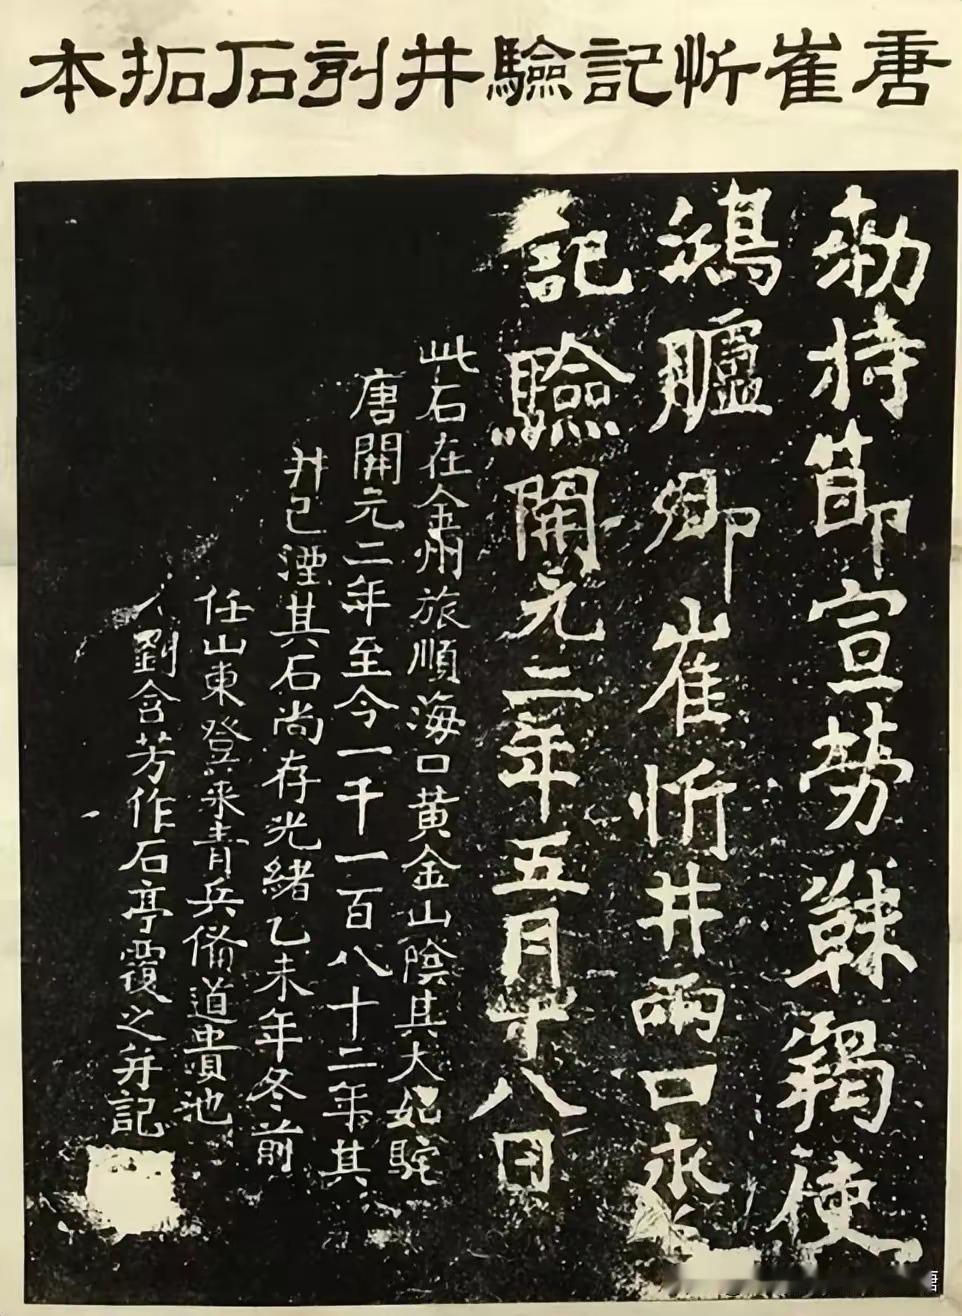 唐崔忻記驗井刻石拓本
勑持節宣勞靺鞨使
鴻臚卿崔忻井兩口永為
記驗開元二年五月十八日
此石在金州旅順海口黃金山陰其大如駝
唐開元二年至今一千一百八十二年其
井已湮其石尚存光緒乙未年冬前
任山東登萊青兵備道貴池
劉含芳作石亭覆之并記